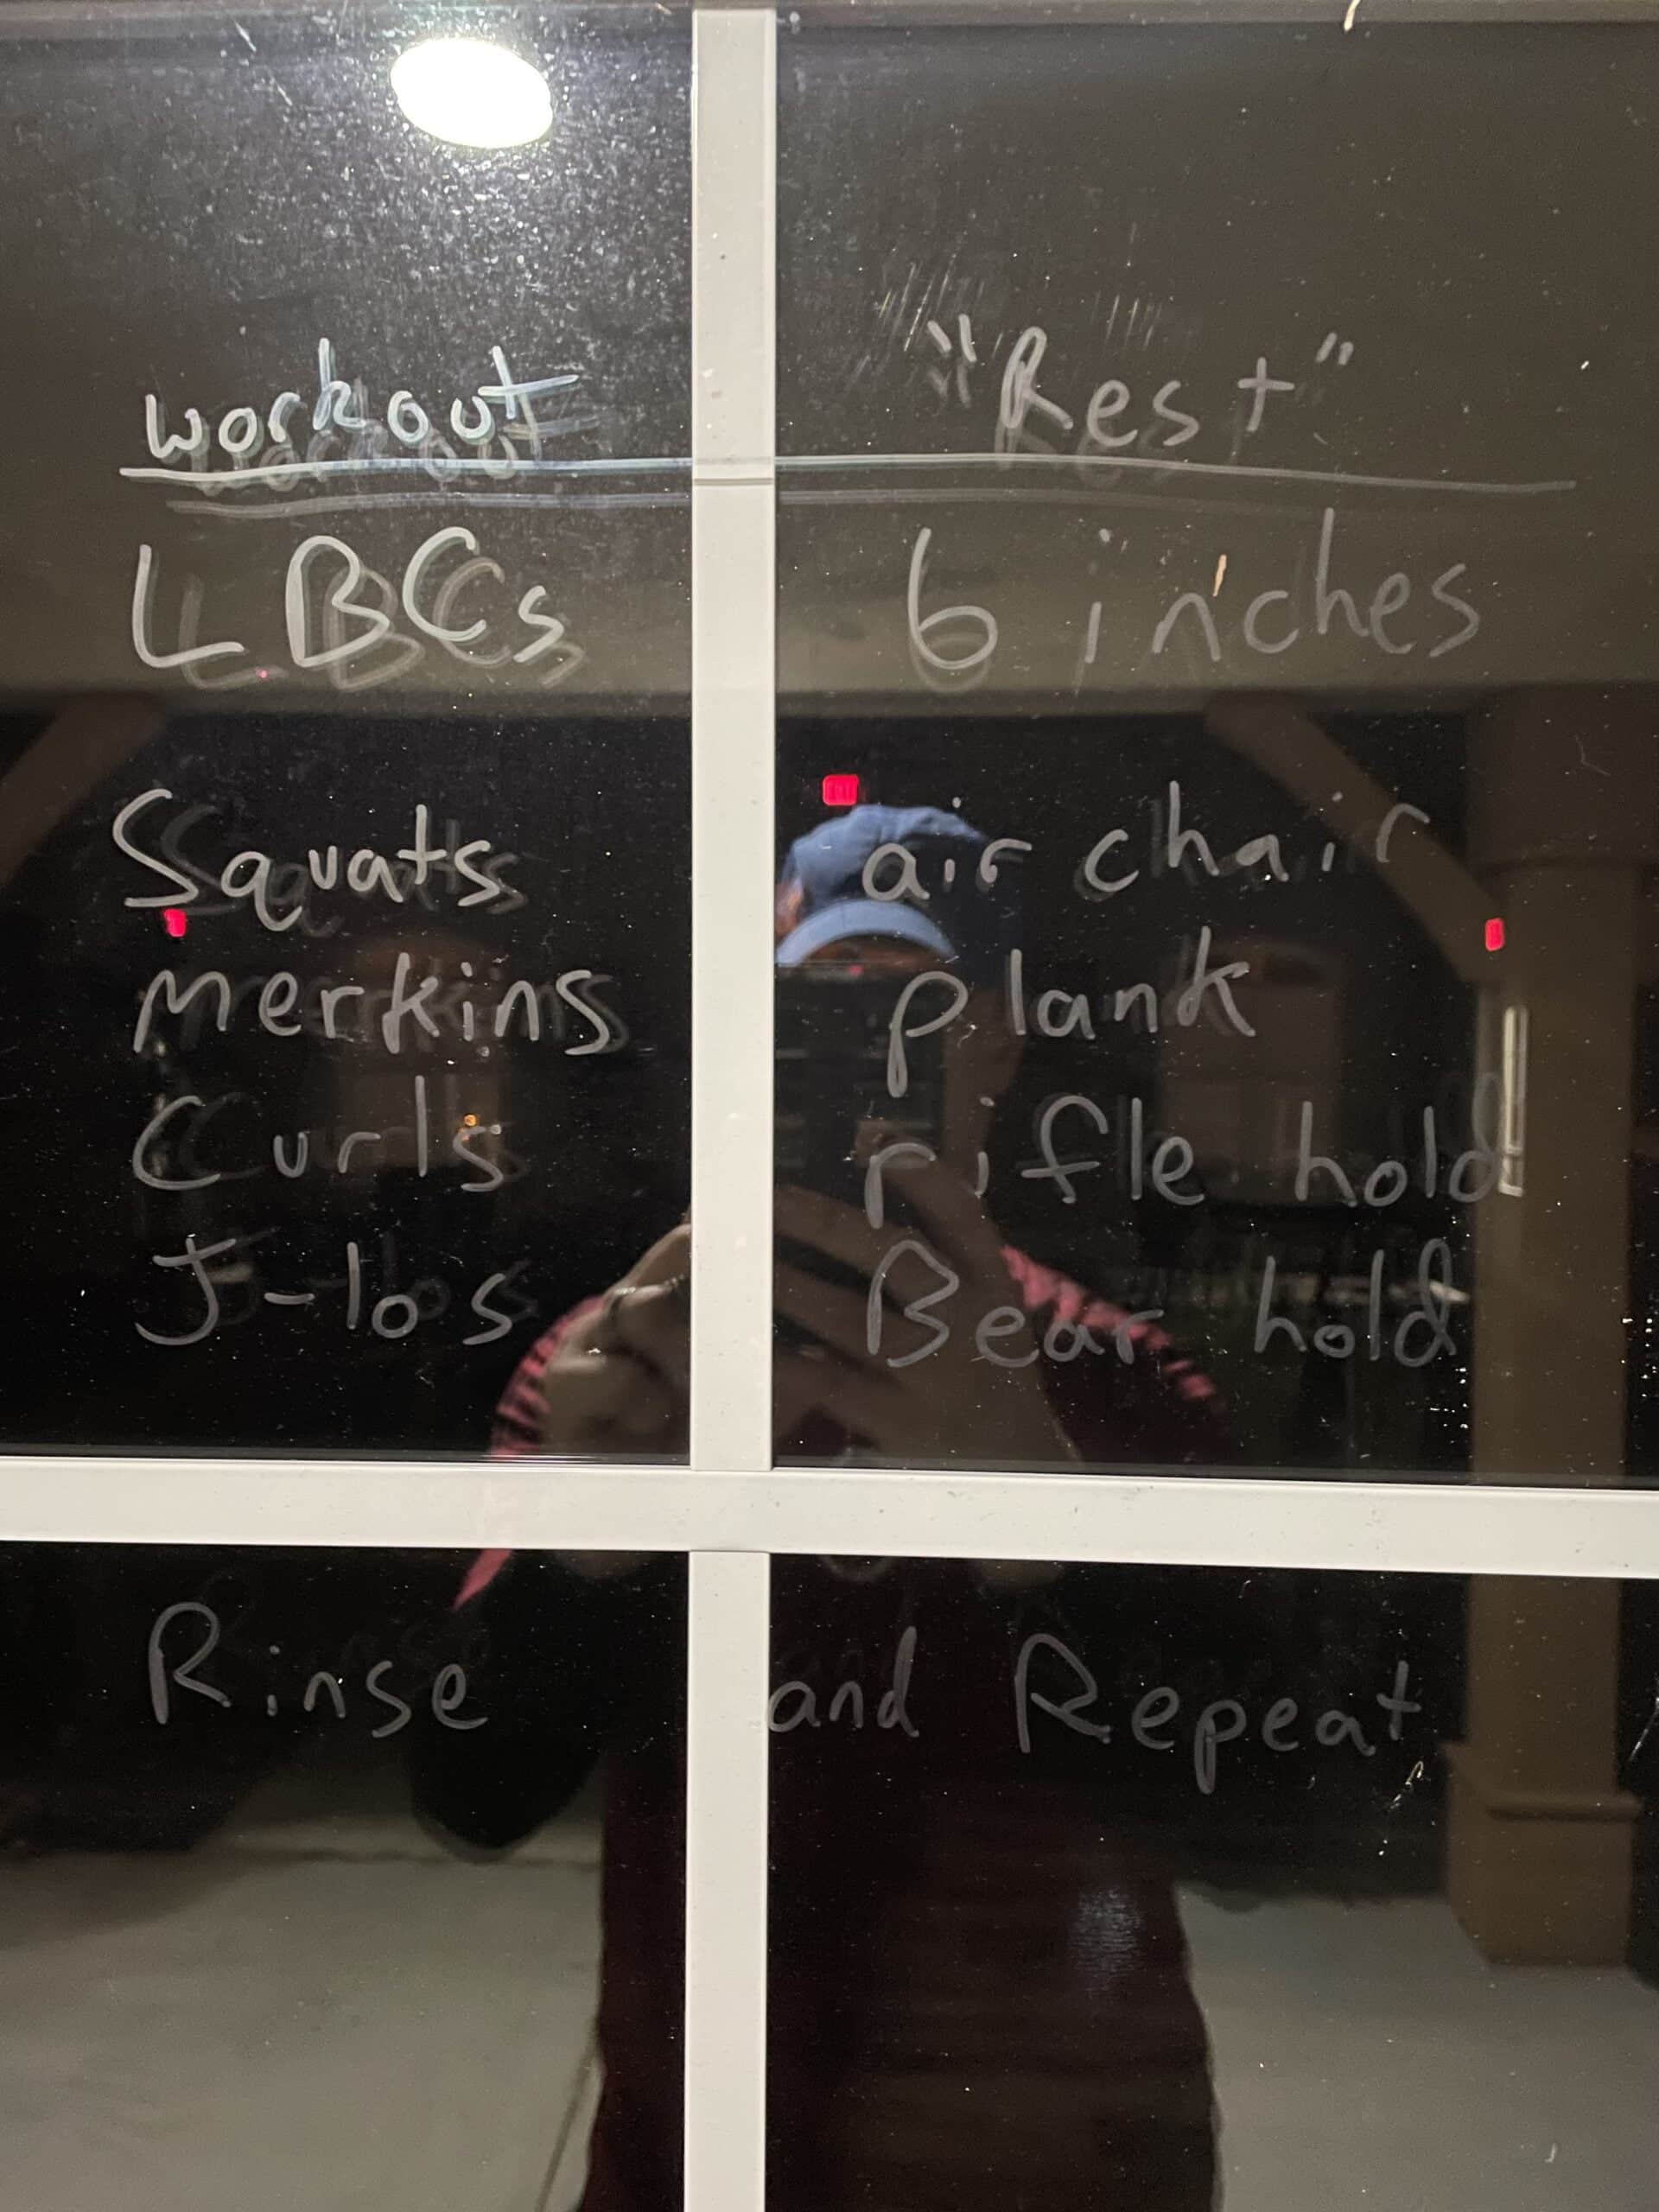 workout "Rest"
LBCs 6 inches
Squats air chair
merkins plank
Curls rifle hold
J-los Bear hold
Rinse and Repeat